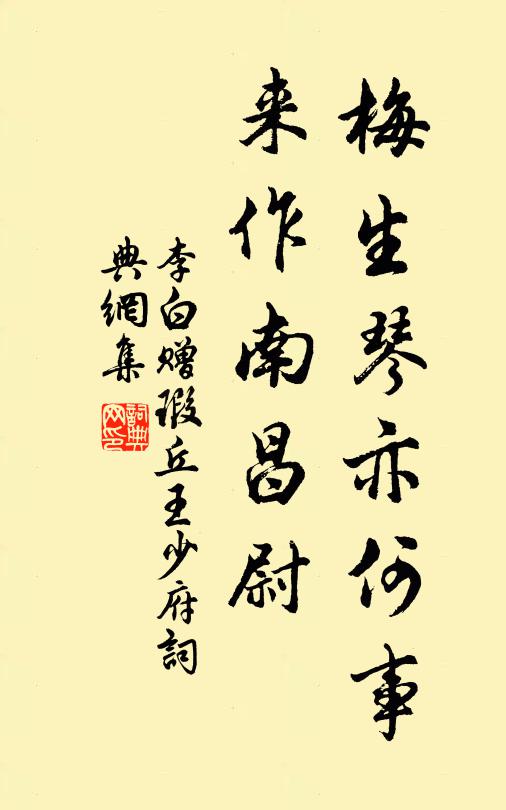 梅生琴亦何事
来作南昌尉
李白赠瑕丘王少府詞
典網集
詞典网印